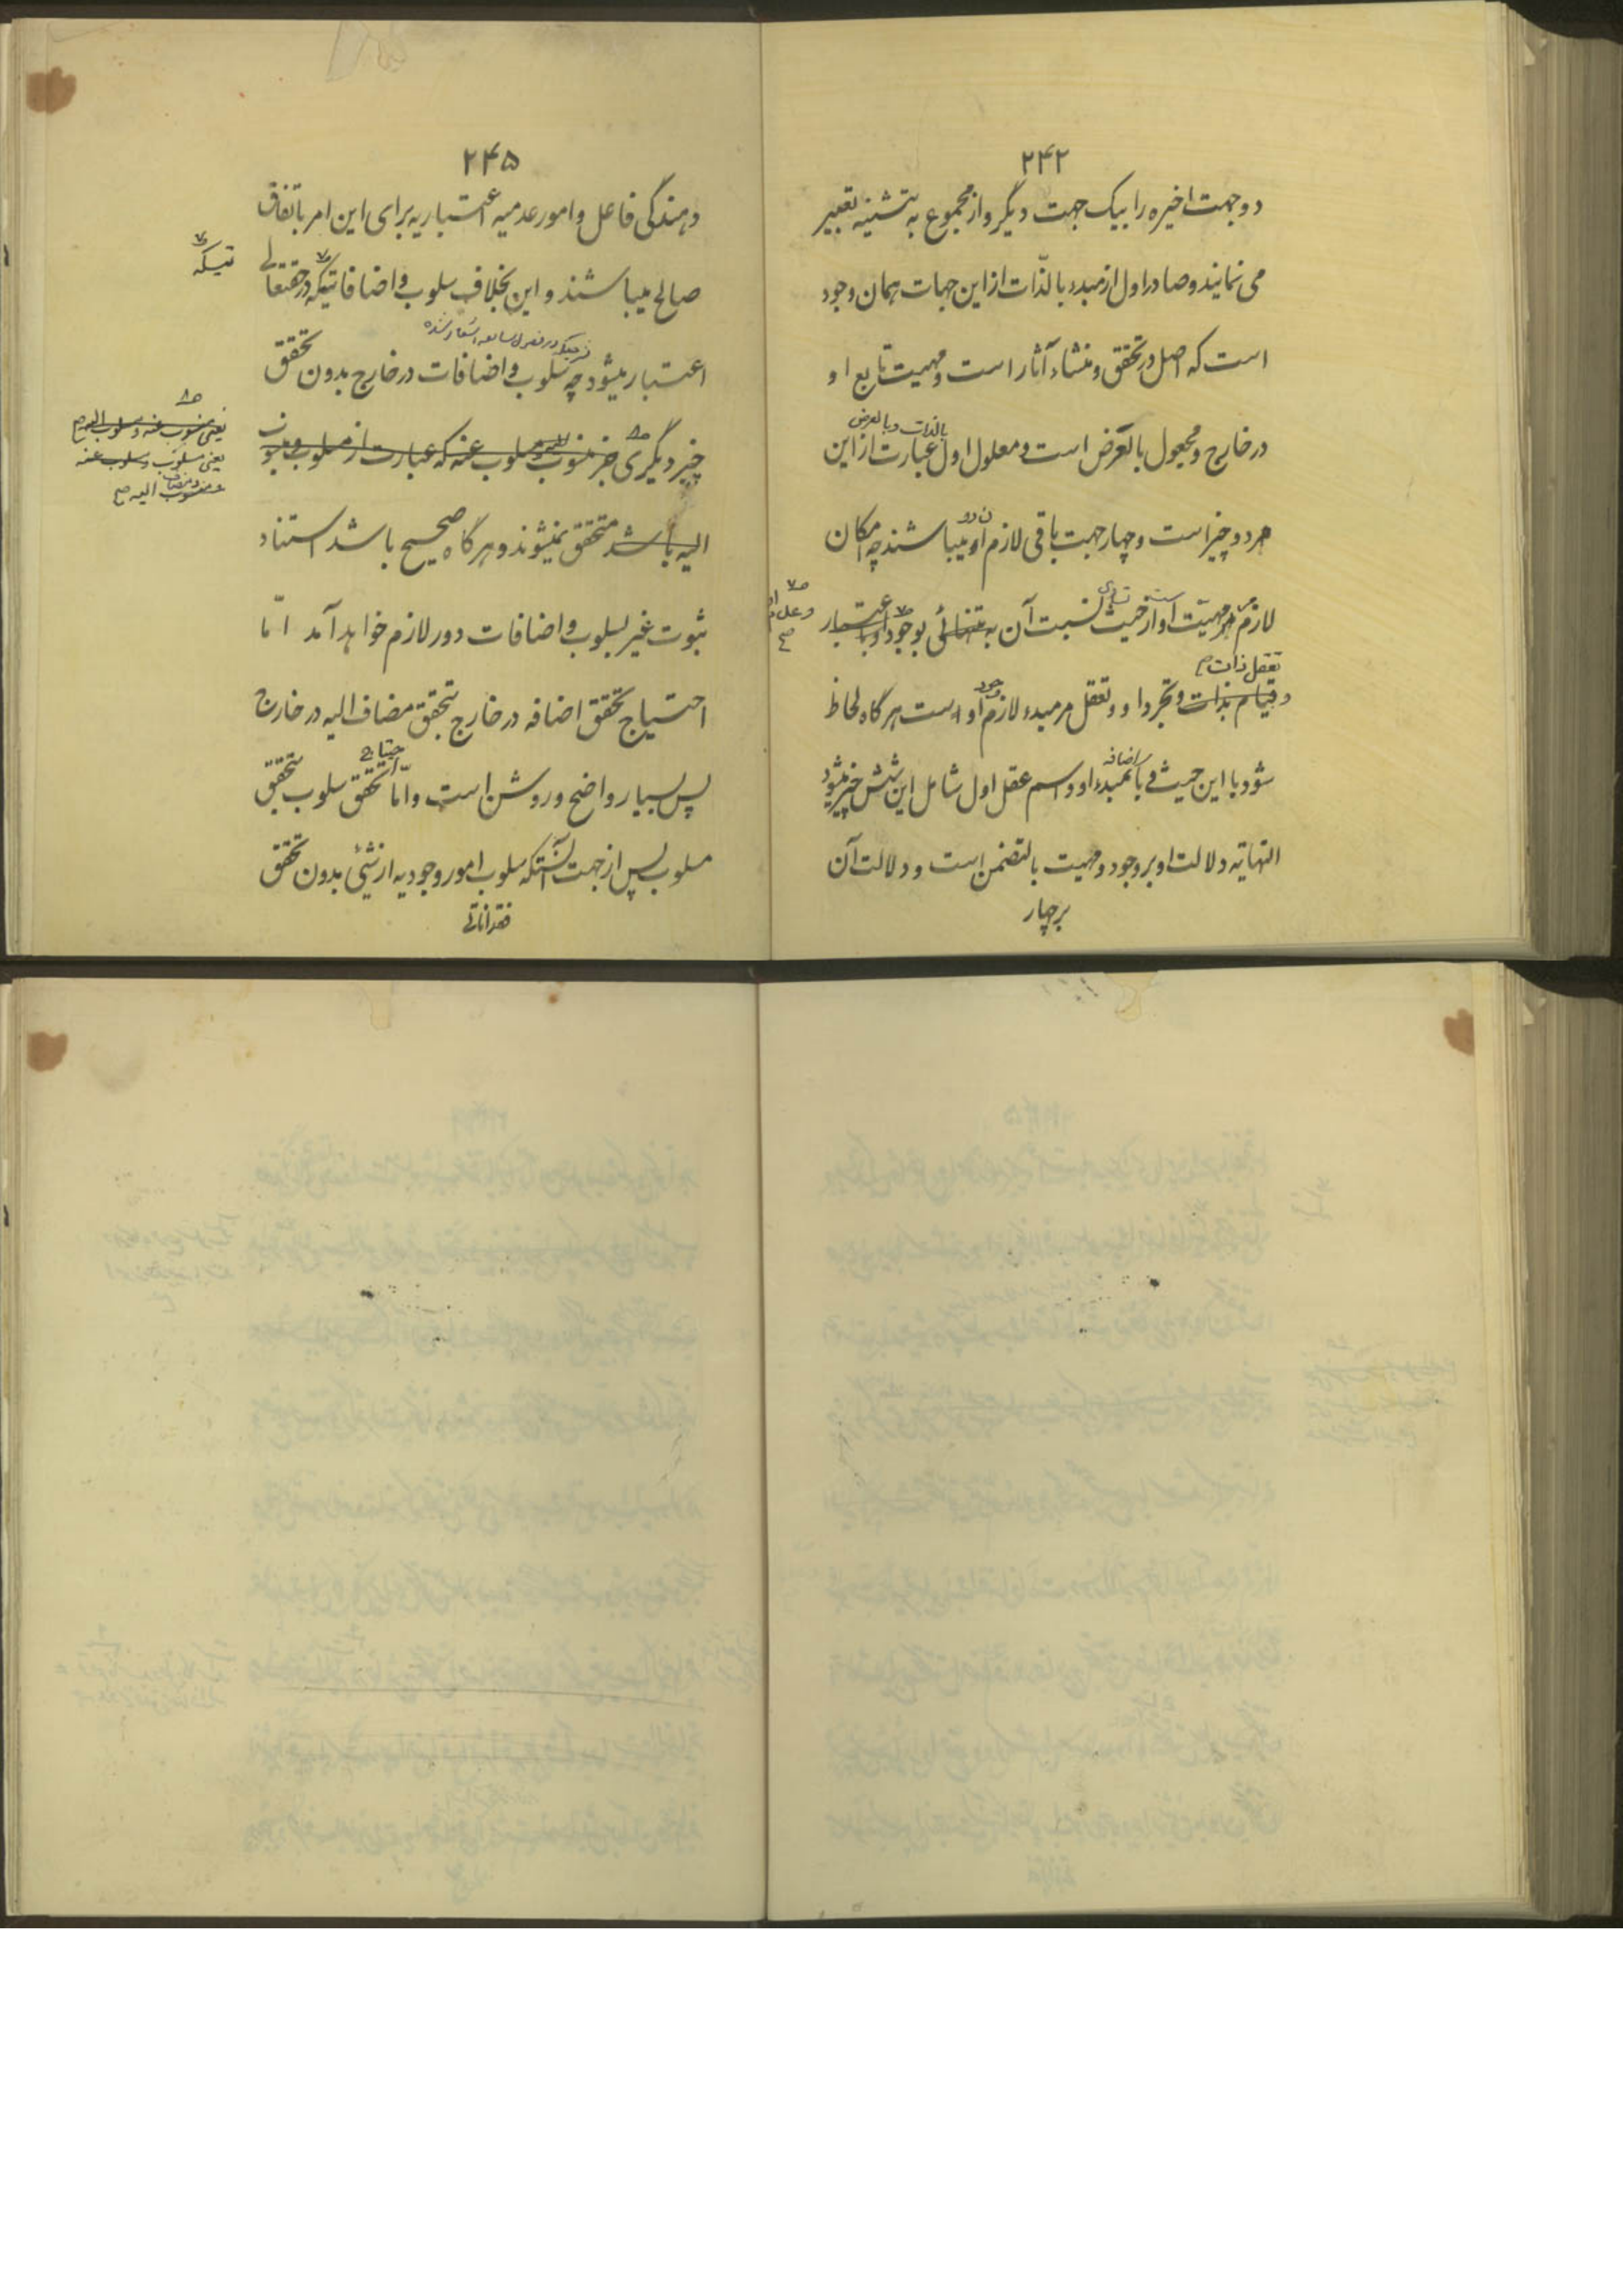 ۲۴۲
دو جهت اخیره را بیک جهت دیگر و از مجموع به تثنیه تعبیر
می نمایند و صادر اول از مبدء بالذّات از این جهات همان وجود
است که اصل در تحقق و منشاء آثار است و مهیت تابع او
بالذات و بالعرض
در خارج و مجعول بالعرض است و معلول اول عبارت از این
هر دو چیز است و چهار جهت باقی لازم او میباشند چه امکان
لازم مهیّت او از حیث نسبت آن به تنهائی بوجود و با عتبار
تعقل ذات
و قیام بذات و تجرد او و تعقل مر مبدء لازم او است هر گاه لحاظ
وجود
اضافه
شود با این حیث و با مبدء او و اسم عقل اول شامل این شش چیز میشود
النهایه دلالت او بر وجود و مهیت بالتضمن است و دلالت آن
بر چهار
۲۴۵
دهندگی فاعل و امور عدمیه اعتباریه برای این امر باتفاق
صالح میباشند و این بخلاف سلوب و اضافاتیکه در حقتعالی
تیکه
اعتبار میشود چه سلوب و اضافات در خارج بدون تحقق
چیز دیگری جز منسوب مسلوب عنه که عبارت از مسلوب و منسوب
یعنی منسوب عنه و مسلوب الیه
یعنی مسلوب و مسلوب عنه
و منسوب الیه صح
الیه باشد متحقق نمیشوند و هر گاه صحیح باشد استناد
ثبوت غیر بسلوب و اضافات دور لازم خواهد آمد امّا
احتیاج تحقق اضافه در خارج بتحقق مضاف الیه در خارج
احتیاج
پس بسیار واضح و روشن است و امّا تحقق سلوب بتحقق
مسلوب پس از جهت آنستکه سلوب امور وجودیه از شیئ بدون تحقق
فقداناتی